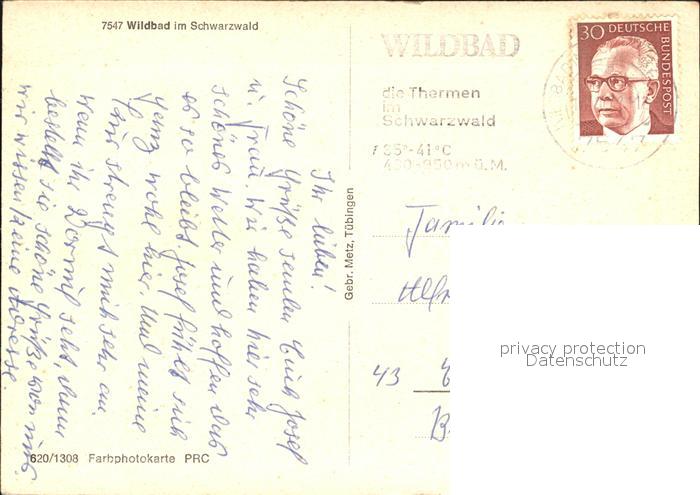 7547 Wildbad im Schwarzwald
WILDBAD
30 DEUTSCHE
BUNDESPOST
die Thermen
im
Schwarzwald
35°-41°C
430-950 m ü. M.
Ihr lieben!
Schöne Grüße senden Euch Josef
u. Frau. Wir haben hier sehr
schönes Wetter und hoffen das
es so bleibt. Josef fühlt sich
ganz wohl hier. Und meine
strengt mich sehr an
wenn ihr seht, dann
bestellt sie schöne Grüße von uns
wir wissen keine Adresse
Gebr. Metz, Tübingen
Familie
43
privacy protection
Datenschutz
620/1308 Farbphotokarte PRC